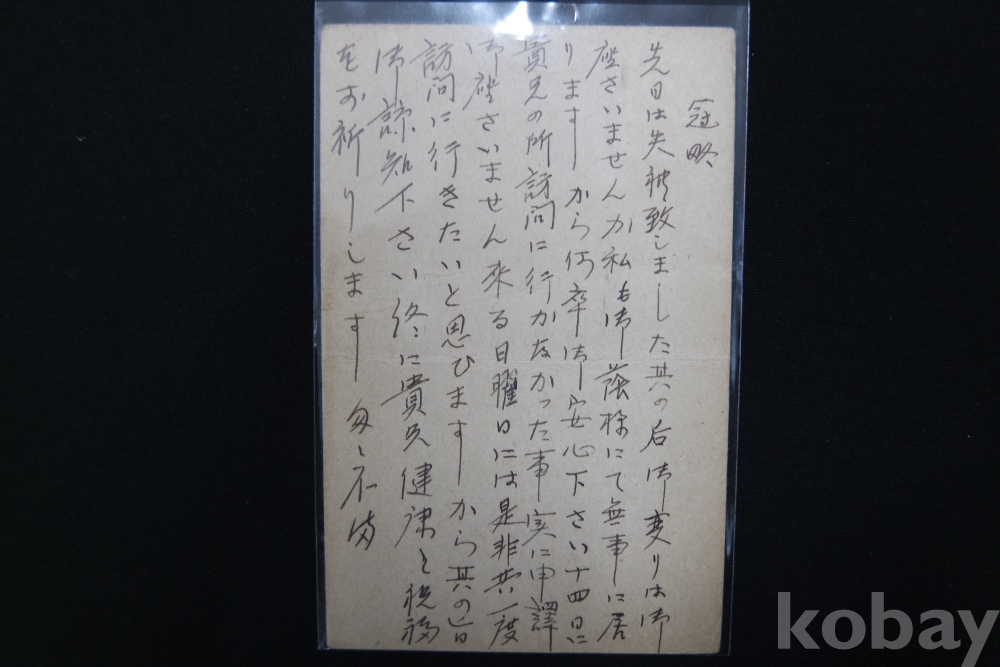 冠略
先日は失礼致しました其の后御変りは御
座さいませんか私も御蔭様にて無事に居
りますから何卒御安心下さい十四日に
貴兄の所訪問に行かなかった事実に申譯
御座さいません来る日曜日には是非共一度
訪問に行きたいと思ひますから其の旨
御諒知下さい終に貴兄健康と祝福
をお祈りします 匆々
kobay